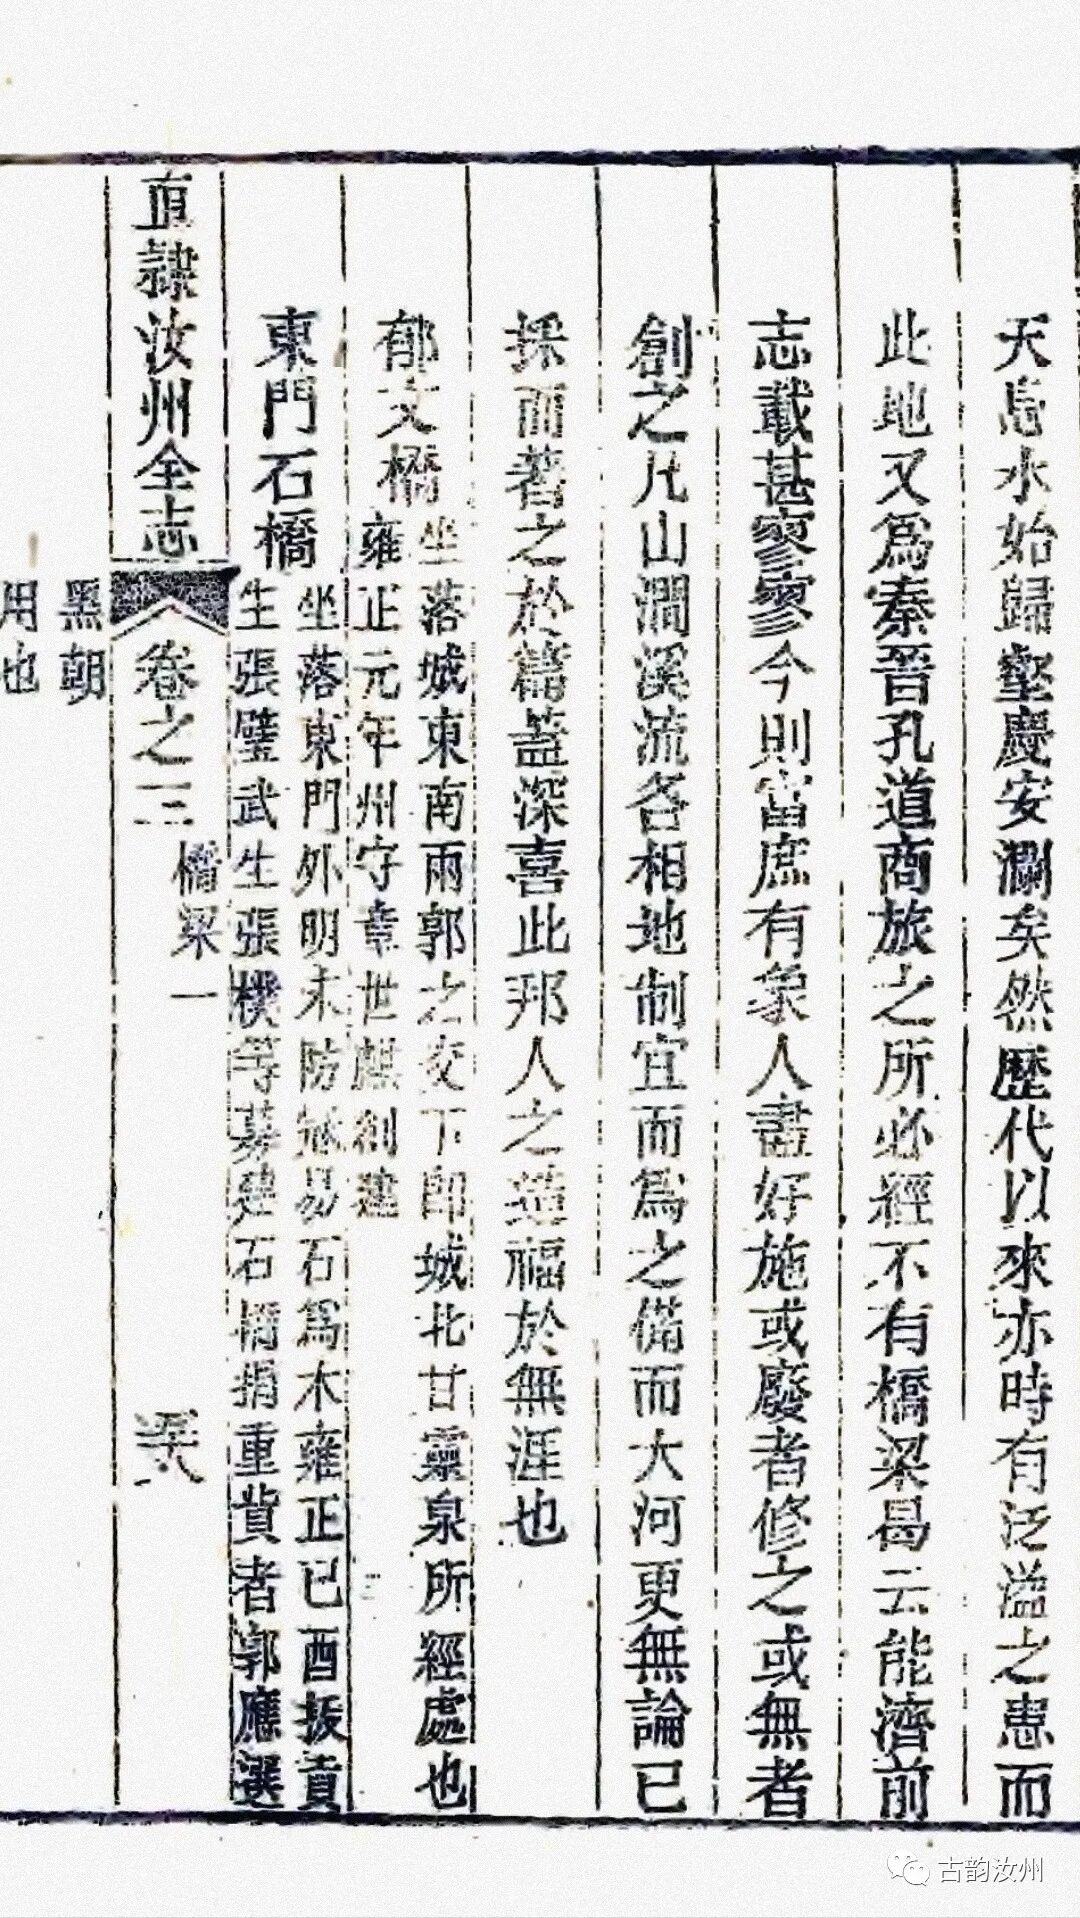 天息水始歸壑慶安瀾矣然歷代以來亦時有泛溢之患而
此地又爲秦晉孔道商旅之所必經不有橋梁曷云能濟前
志載甚寥寥今則富庶有象人盡好施或廢者修之或無者
創之凡山澗溪流各相地制宜而爲之備而大河更無論已
採而著之於篇蓋深喜此邦人之造福於無涯也
郁文橋
坐落城東南兩郭之交下卽城北甘靈泉所經處也
雍正元年州守章世麒創建
東門石橋
坐落東門外明末防寇易石爲木雍正已酉拔貢
生張璧武生張樸等募建石橋捐重貲者郭應選
直隸汝州全志
卷之三
橋梁一
黑朝
用也
古韵汝州